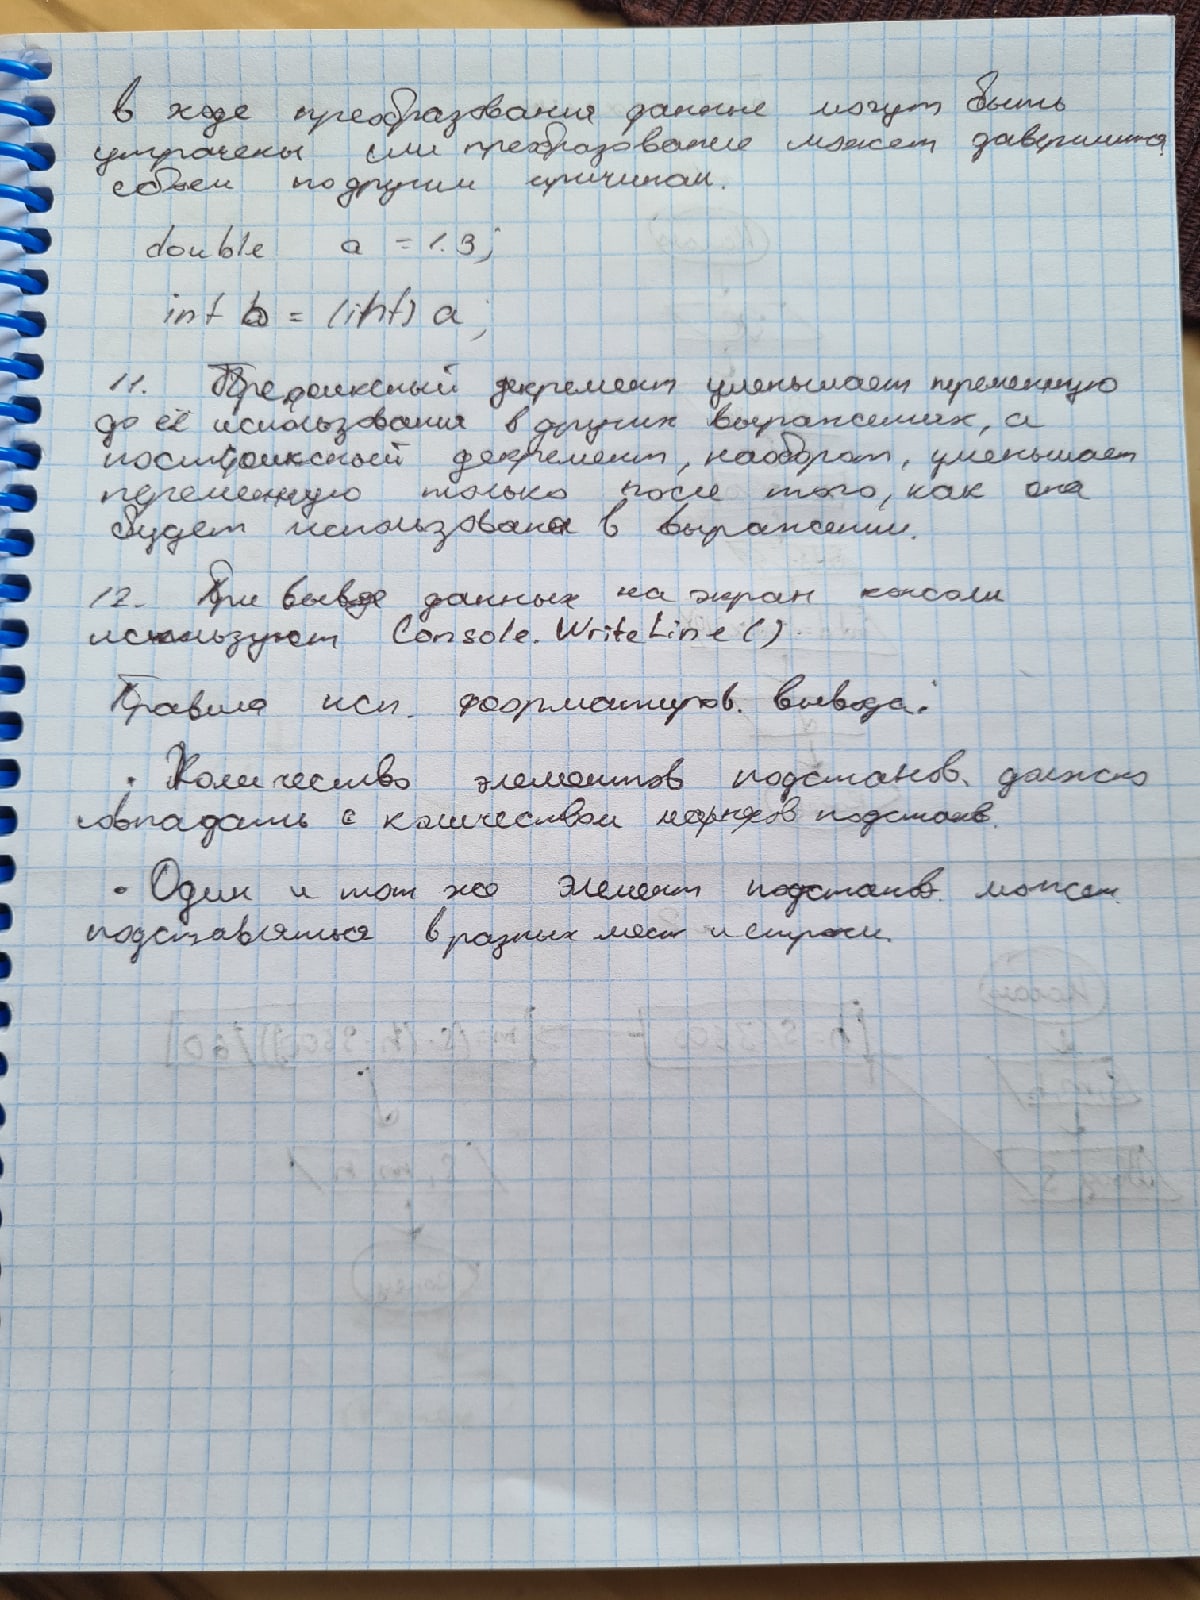 в ходе преобразования данные могут быть
утрачены или преобразование может завершиться
сбоем по другим причинам.
double a = 1.3;
int b = (int) a;
11. Префиксный декремент уменьшает переменную
до её использования в других выражениях, а
постфиксный декремент, наоборот, уменьшает
переменную только после того, как она
будет использована в выражении.
12. При выводе данных на экран консоли
используют Console.WriteLine()
Правила исп. форматиров. вывода:
• Количество элементов подстанов. должно
совпадать с количеством подстанов.
• Один и тот же элемент подстанов. может
подставляться в разных мест и строки.